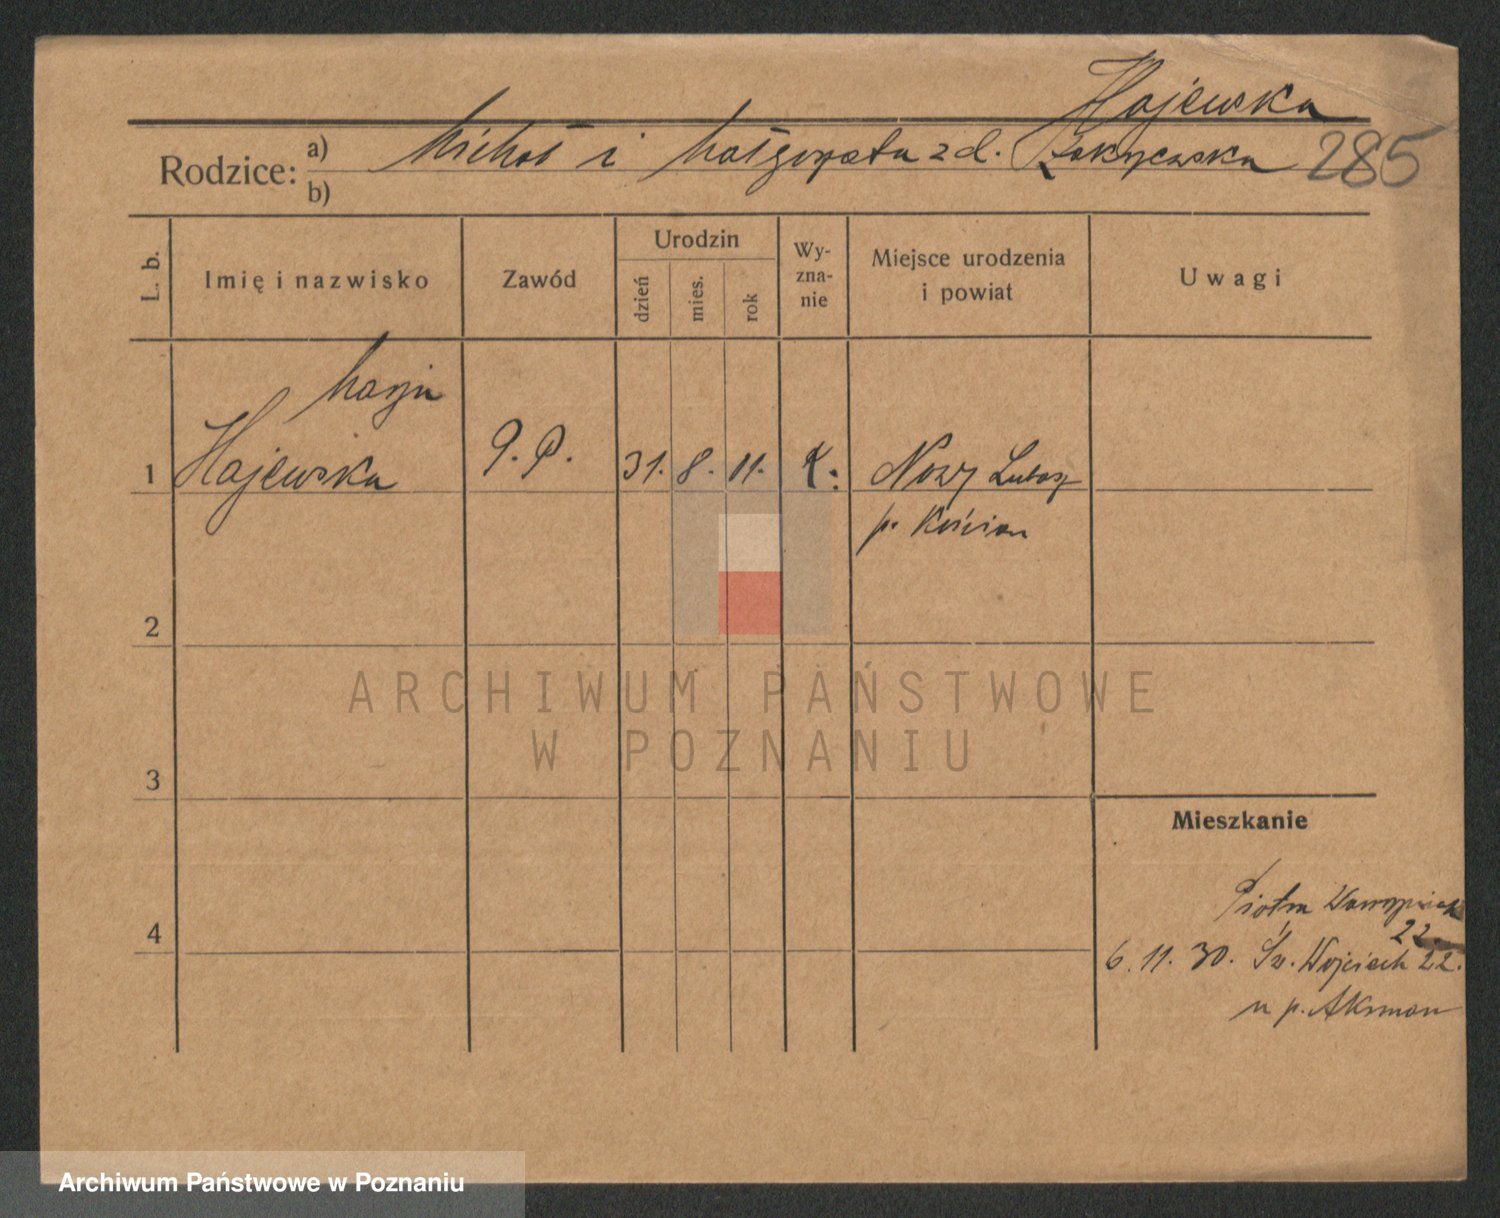 Hajewska
Rodzice: a) Michał i Małgorzata z d.
b)
285
L. b.
Imię i nazwisko
Zawód
Urodzin
dzień
mies.
rok
Wy-
zna-
nie
Miejsce urodzenia
i powiat
Uwagi
Marja
1 Hajewska
31. 8. 11. K. Nowy Lubosz
p. Kościan
2
3
4
ARCHIWUM PAŃSTWOWE
W POZNANIU
Mieszkanie
Piotra Wawrzyniak
22
6.11.30. Św. Wojciech 22.
u p. Akrman
Archiwum Państwowe w Poznaniu